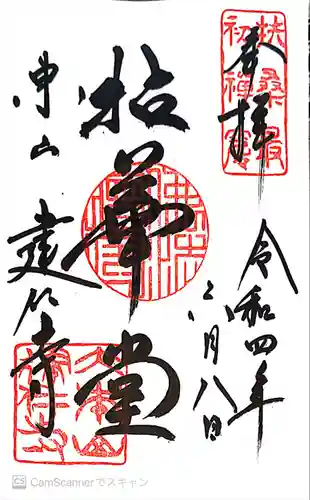 奉拝
扶桑最
初禅窟
令和四年
二月八日
拈華堂
東山
建仁寺
CS CamScannerでスキャン